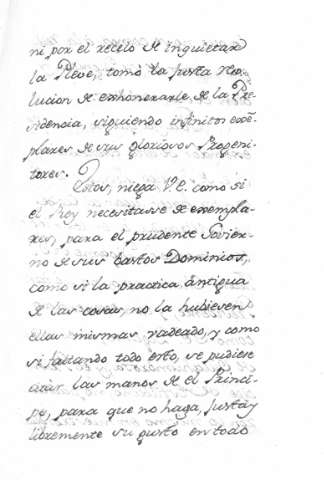 ni por el recelo de inquietarse
la Pleve, tomó la justa reso-
lucion de exhonerarle de la Pre-
sidencia, siguiendo infinitos exẽ-
plares de sus gloriosos Progeni-
tores.
Estos, niega V.E. como si
el Rey necesitasse de exempla-
res, para el prudente Govier-
no de sus bastos Dominios,
como si la practica antigua
de las cosas, no la hubiesen
ellas mismas variado, y como
si faltando todo esto, se pudiese
atar las manos de el Princi-
pe, para que no haga, justa, y
libremente su gusto en todo